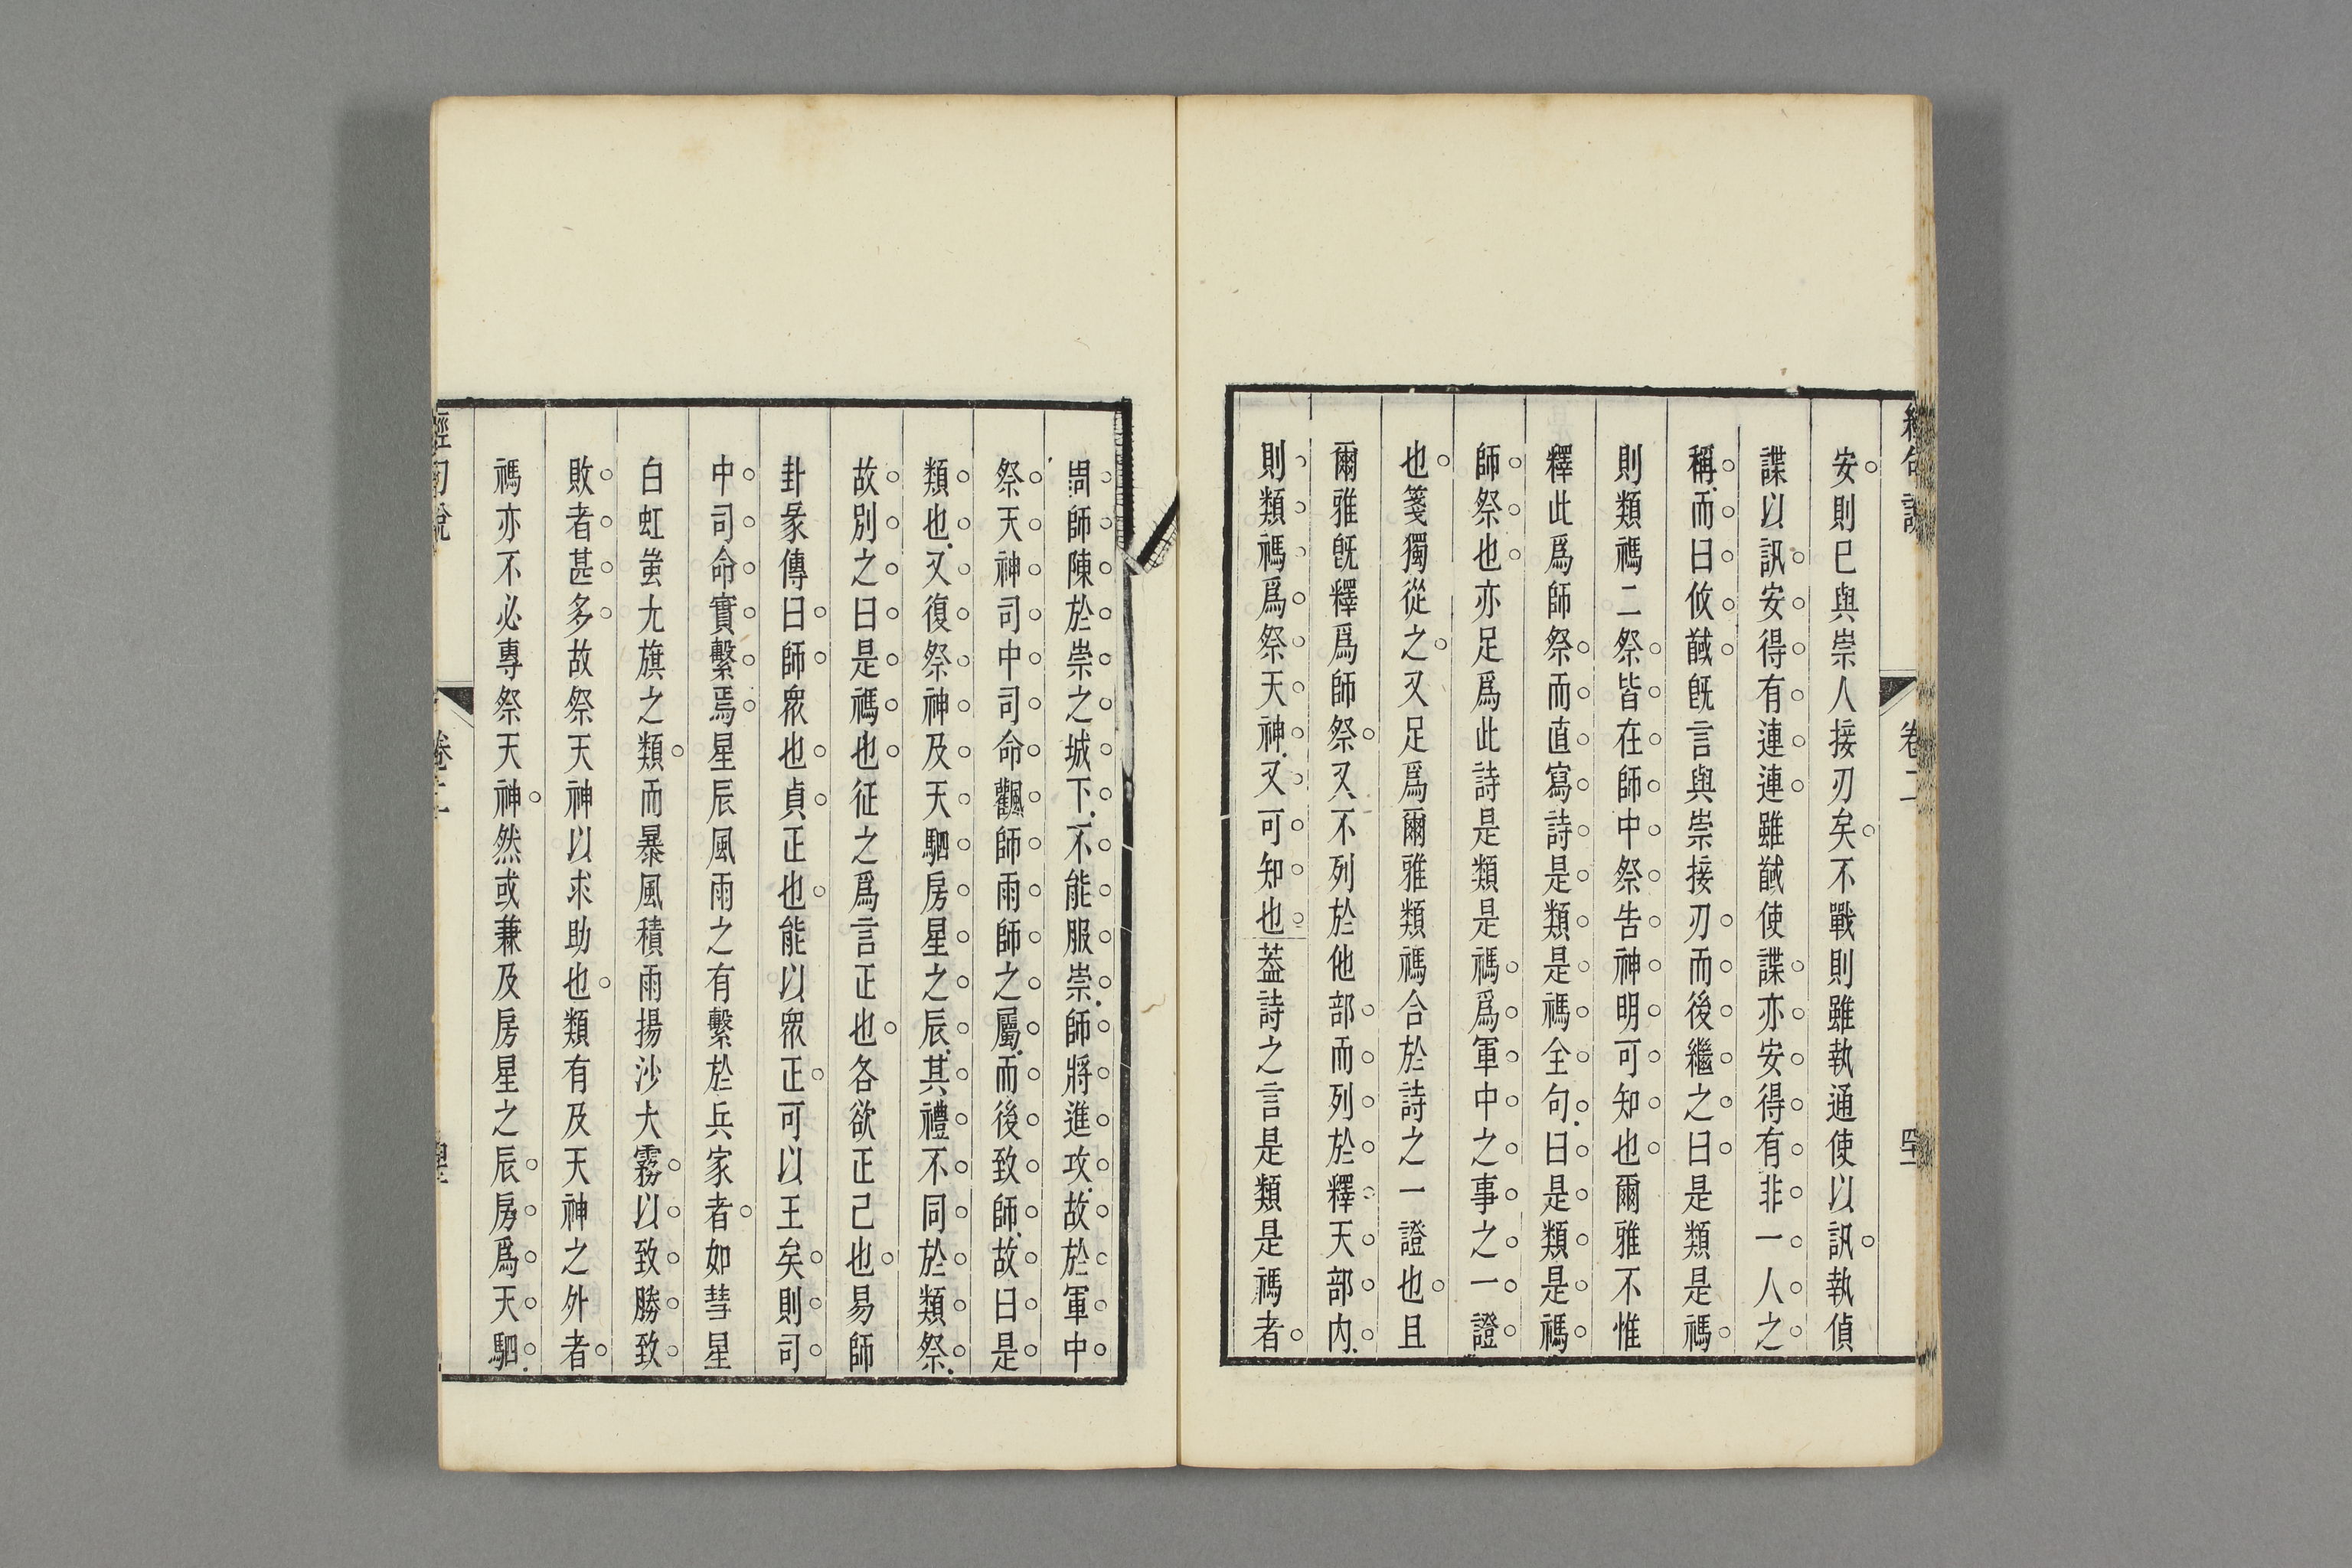 安則已與崇人接刃矣不戰則雖執通使以訊執偵
諜以訊安得有連連雖馘使諜亦安得有非一人之
稱而曰攸馘旣言與崇接刃而後繼之曰是類是禡
則類禡二祭皆在師中祭告神明可知也爾雅不惟
釋此爲師祭而直寫詩是類是禡全句曰是類是禡
師祭也亦足爲此詩是類是禡爲軍中之事之一證
也箋獨從之又足爲爾雅類禡合於詩之一證也且
爾雅旣釋爲師祭又不列於他部而列於釋天部內
則類禡爲祭天神又可知也葢詩之言是類是禡者
周師陳於崇之城下不能服崇師將進攻故於軍中
祭天神司中司命飌師雨師之屬而後致師故曰是
類也又復祭神及天駟房星之辰其禮不同於類祭
故別之曰是禡也征之爲言正也各欲正己也易師
卦彖傳曰師眾也貞正也能以眾正可以王矣則司
中司命實繫焉星辰風雨之有繫於兵家者如彗星
白虹蚩尤旗之類而暴風積雨揚沙大霧以致勝致
敗者甚多故祭天神以求助也類有及天神之外者
禡亦不必專祭天神然或兼及房星之辰房爲天駟